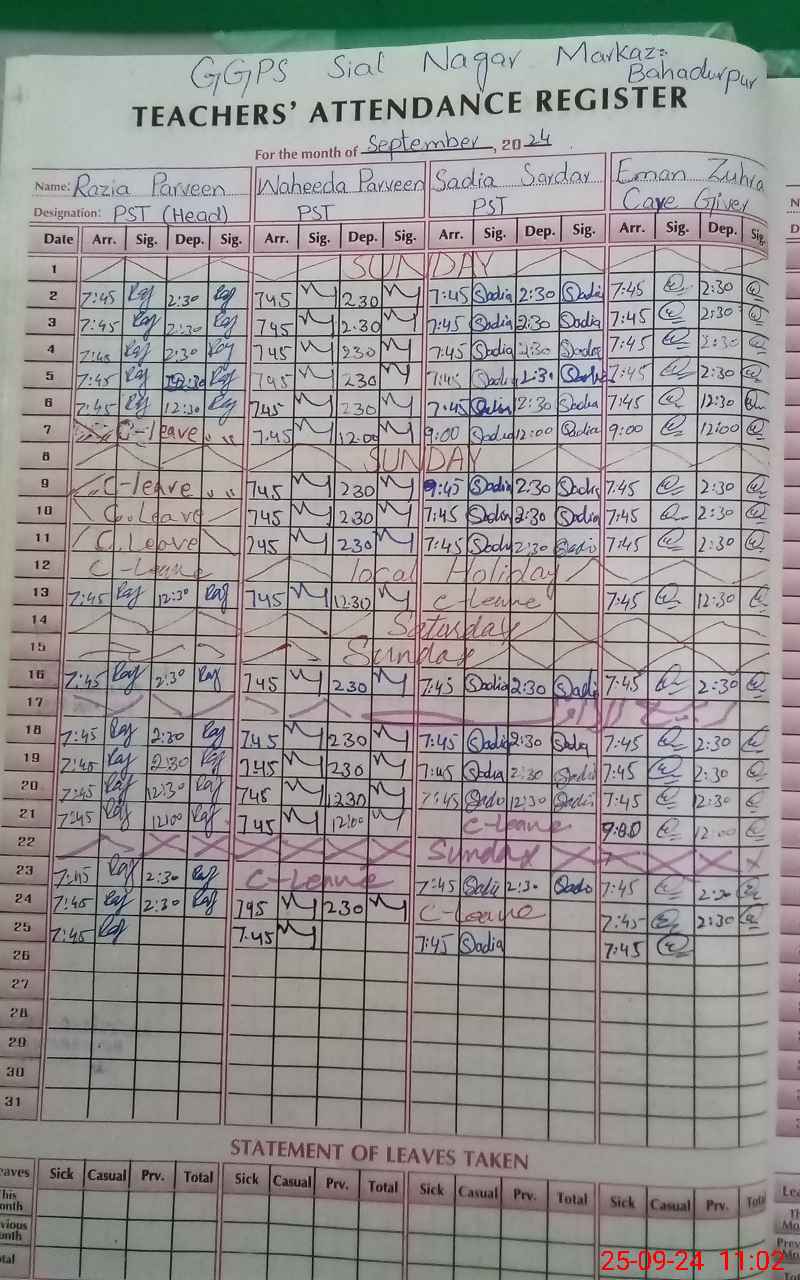 GGPS Sial Nagar Markaz:
Bahadurpur
TEACHERS' ATTENDANCE REGISTER
For the month of September, 2024
Name: Razia Parveen Waheeda Parveen Sadia Sardar Eman Zuhra
Designation: PST (Head) PST PST Care Giver
Date Arr. Sig. Dep. Sig. Arr. Sig. Dep. Sig. Arr. Sig. Dep. Sig. Arr. Sig. Dep. Sig.
1 SUNDAY
2 7:45 2:30 745 230 7:45 Sadia 2:30 Sadia 7:45 2:30
3 7:45 2:30 745 2:30 7:45 Sadia 2:30 Sadia 7:45 2:30
4 7:45 2:30 745 230 7:45 Sadia 2:30 Sadia 7:45 2:30
5 7:45 2:30 745 230 7:45 Sadia 2:30 Sadia 7:45 2:30
6 7:45 12:30 745 230 7:45 12:30 Sadia 7:45 12:30
7 C-leave 〃 〃 7.45 12:00 9:00 Sadia 12:00 Sadia 9:00 12:00
8 SUNDAY
9 C-leave 〃 〃 745 230 9:45 Sadia 2:30 Sadia 7:45 2:30
10 C.Leave 745 230 7:45 Sadia 2:30 Sadia 7:45 2:30
11 C.Leave 745 230 7:45 Sadia 2:30 Sadia 7:45 2:30
12 C-Leave local Holiday
13 7:45 12:30 745 1230 C-Leave 7:45 12:30
14 Saturday
15 Sunday
16 7:45 2:30 745 230 7:45 Sadia 2:30 Sadia 7:45 2:30
17
18 7:45 2:30 745 230 7:45 Sadia 2:30 Sadia 7:45 2:30
19 7:45 2:30 745 230 7:45 Sadia 2:30 Sadia 7:45 2:30
20 7:45 12:30 745 1230 7:45 Sadia 12:30 Sadia 7:45 12:30
21 7:45 12:00 745 12:00 C-Leave 9:00 12:00
22 Sunday
23 7:45 2:30 C-Leave 7:45 Sadia 2:30 Sadia 7:45 2:30
24 7:45 2:30 745 230 C-Leave 7:45 2:30
25 7:45 7.45 7:45 Sadia 7:45
26
27
28
29
30
31
STATEMENT OF LEAVES TAKEN
eaves Sick Casual Prv. Total Sick Casual Prv. Total Sick Casual Prv. Total Sick Casual Prv. Total
his
onth
vious
onth
tal
25-09-24 11:02